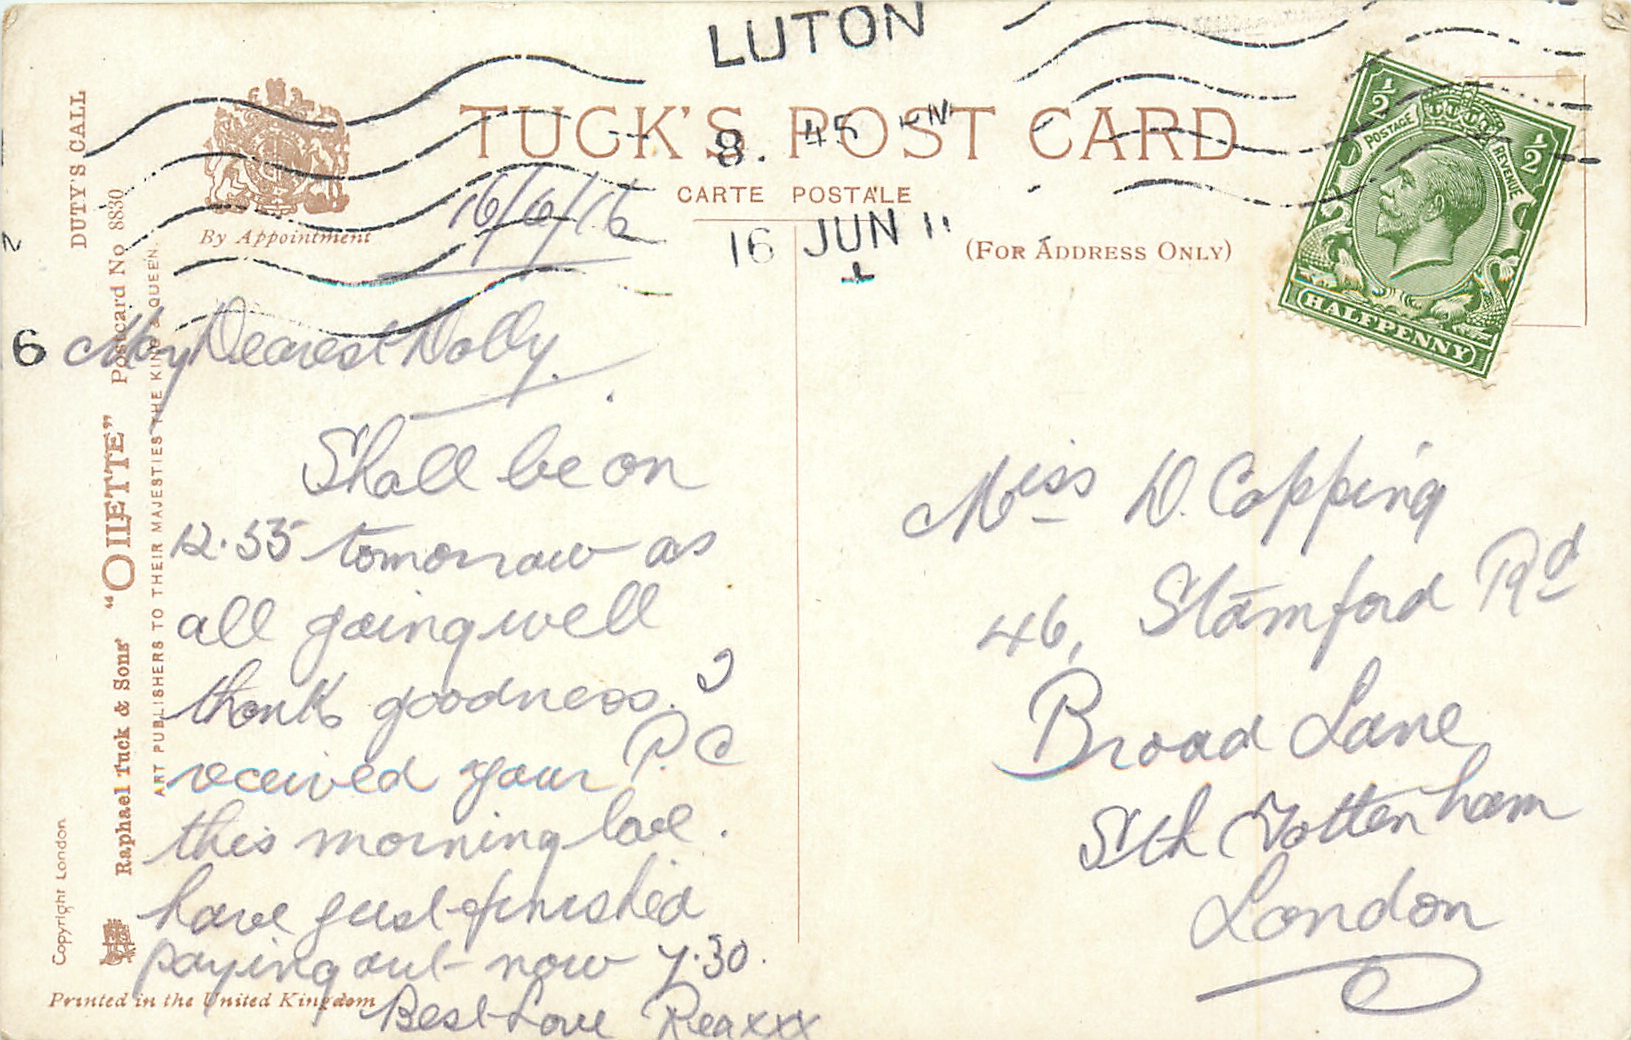 LUTON
8. 45 PM
16 JUN 1
6
DUTY'S CALL
Postcard No 8830
"OILETTE"
Raphael Tuck & Sons'
ART PUBLISHERS TO THEIR MAJESTIES THE KING & QUEEN.
Copyright London
By Appointment
TUCK'S POST CARD
CARTE POSTALE
(FOR ADDRESS ONLY)
POSTAGE REVENUE
½ ½
HALFPENNY
16/6/16
My Dearest Dolly.
Shall be on
12.55 tomorrow as
all going well
thank goodness. I
received your P.C
this morning love.
have just finished
paying out - now 7.30.
Best Love Reg xxx
Printed in the United Kingdom
Miss D. Copping
46, Stamford Rd
Broad Lane
Sth Tottenham
London